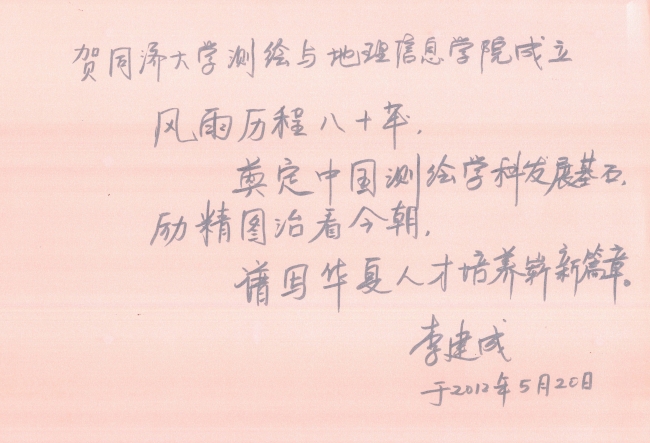 贺同济大学测绘与地理信息学院成立
风雨历程八十年，
奠定中国测绘学科发展基石，
励精图治看今朝，
谱写华夏人才培养崭新篇章。
李建成
于2012年5月20日